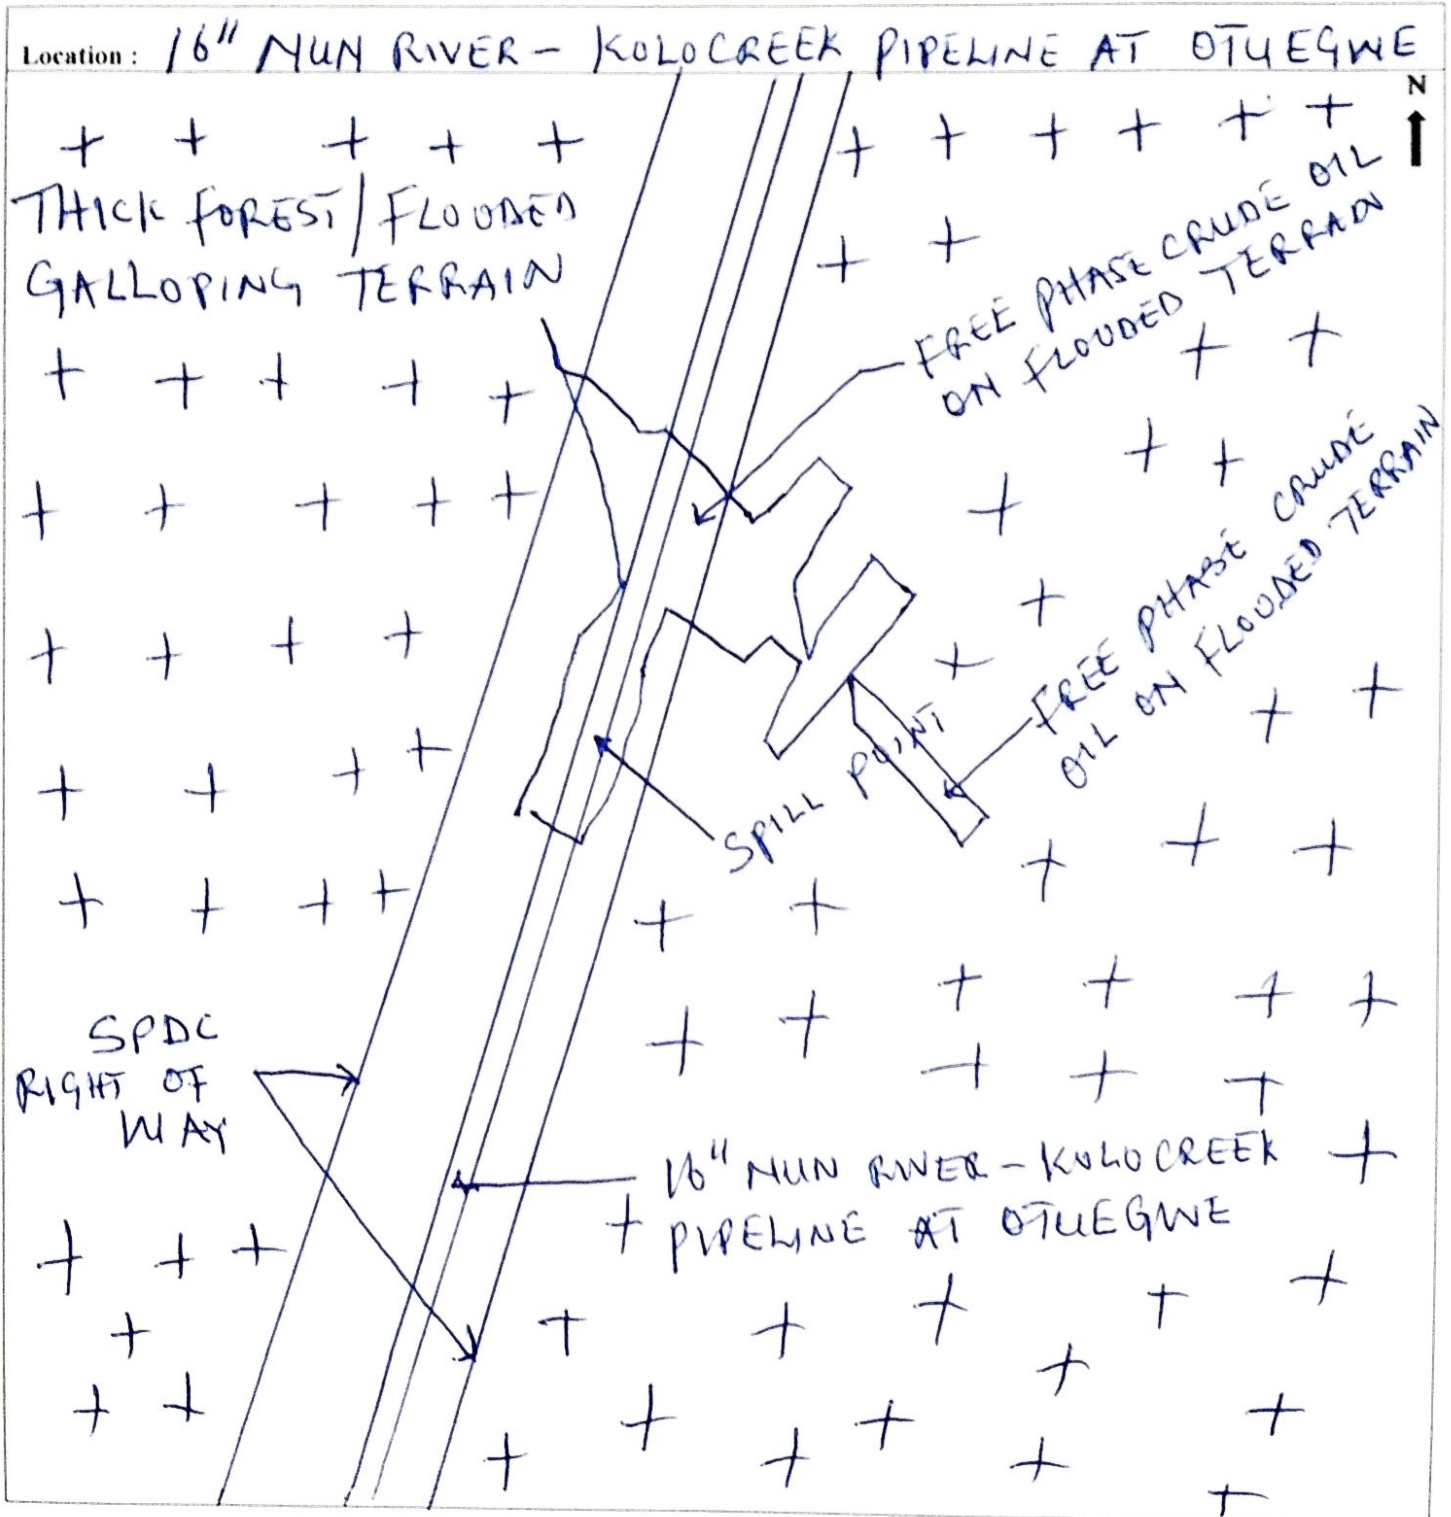 Location : 16" NUN RIVER - KOLOCREEK PIPELINE AT OTUEGWE
N
THICK FOREST/FLOODED
GALLOPING TERRAIN
FREE PHASE CRUDE OIL
ON FLOODED TERRAIN
FREE PHASE CRUDE
OIL ON FLOODED TERRAIN
SPILL POINT
SPDC
RIGHT OF
WAY
16" NUN RIVER - KOLOCREEK
PIPELINE AT OTUEGWE